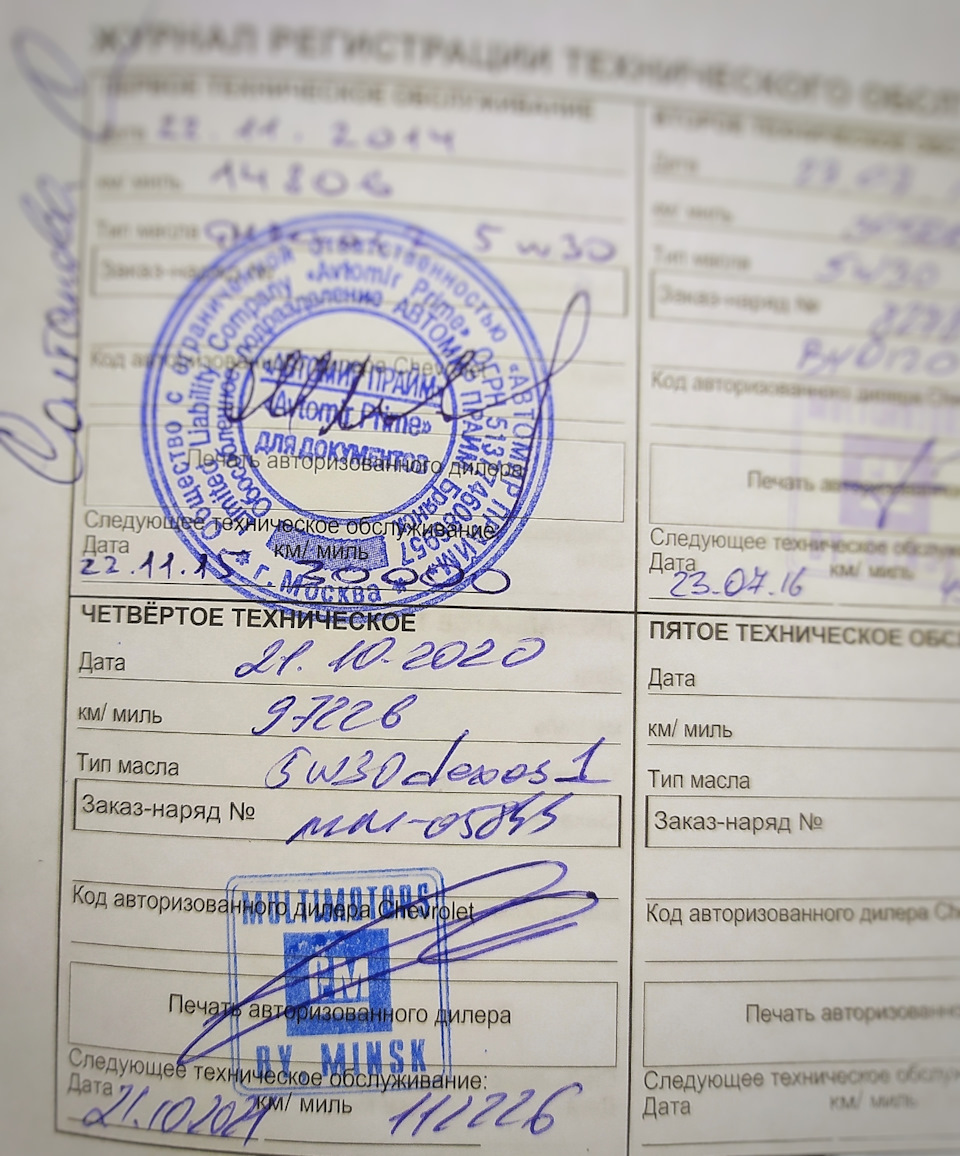 ЖУРНАЛ РЕГИСТРАЦИИ ТЕХНИЧЕСКОГО
ПЕРВОЕ ТЕХНИЧЕСКОЕ ОБСЛУЖИВАНИЕ
Дата 22.11.2014
км/ миль 14806
Тип масла 5w30
Заказ-наряд №
Код авторизованного дилера Chevrolet
Общество с ограниченной ответственностью «АВТОМИР ПРАЙМ»
Limited Liability Company «Avtomir Prime» ОГРН
Обособленное подразделение АВТОМИР ПРАЙМ Брянск
«АВТОМИР ПРАЙМ»
«Avtomir Prime»
ДЛЯ ДОКУМЕНТОВ
* г. Москва *
Печать авторизованного дилера
Следующее техническое обслуживание
Дата км/ миль
22.11.15 30000
ВТОРОЕ ТЕХНИЧЕСКОЕ
Дата
км/ миль
Тип масла 5W30
Заказ-наряд №
Код авторизованного дилера
GM
Печать авторизованного
Следующее техническое
Дата км/ миль
23.07.16
ЧЕТВЁРТОЕ ТЕХНИЧЕСКОЕ
Дата 21.10.2020
км/ миль 97226
Тип масла 5w30 dexos 1
Заказ-наряд №
Код авторизованного дилера Chevrolet
MULTIMOTORS
GM
BY, MINSK
Печать авторизованного дилера
Следующее техническое обслуживание:
Дата км/ миль
21.10.2021 112226
ПЯТОЕ ТЕХНИЧЕСКОЕ
Дата
км/ миль
Тип масла
Заказ-наряд №
Код авторизованного дилера
Печать авторизованного
Следующее техническое
Дата км/ миль